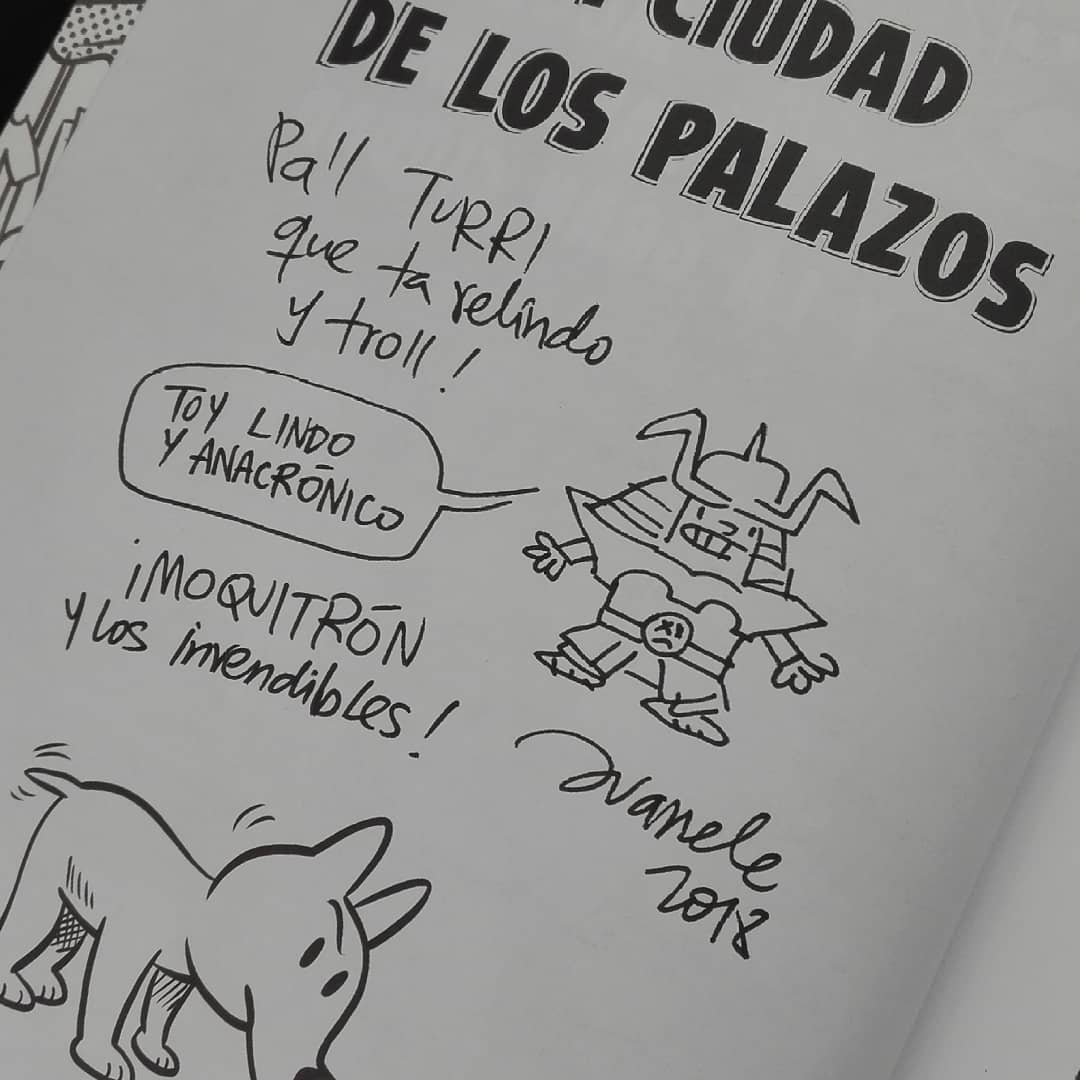 CIUDAD
DE LOS PALAZOS
Pa'l TURRI
que ta relindo
y troll!
TOY LINDO
Y ANACRÓNICO
¡MOQUITRÓN
y los invendibles!
Juanele
2018